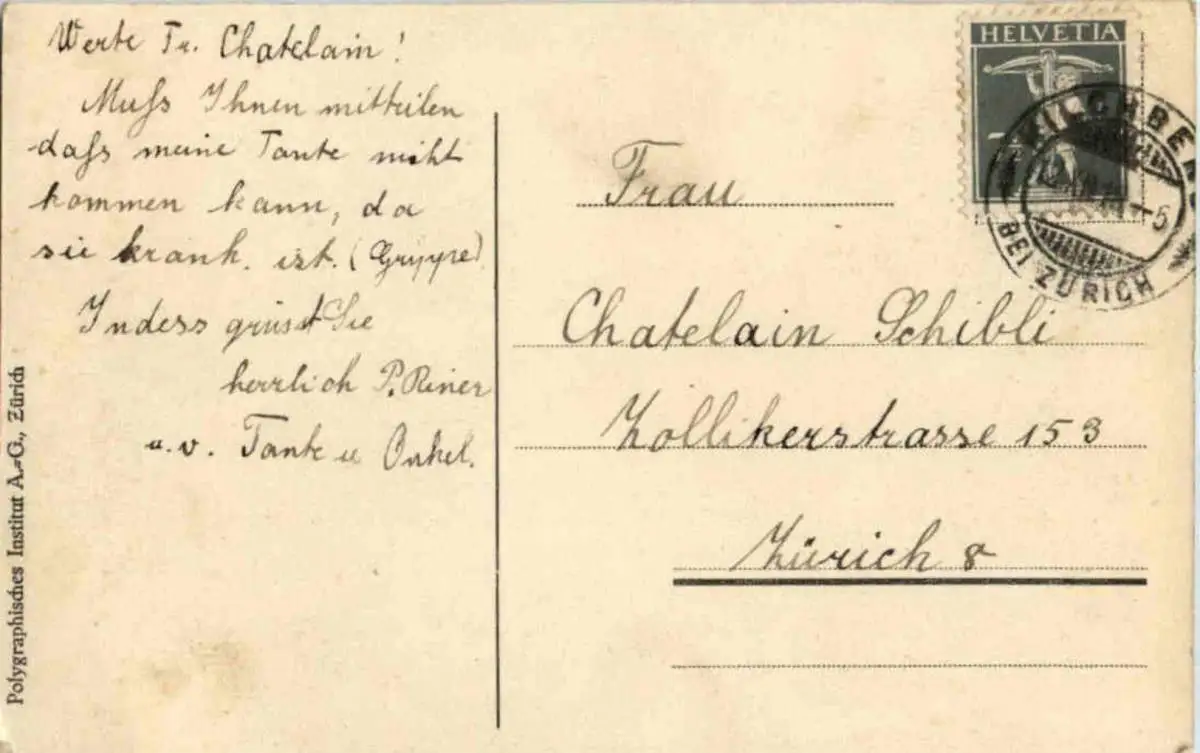 Werte Fr. Chatelain!
Muss Ihnen mitteilen
dass meine Tante nicht
kommen kann, da
sie krank. ist. (Grippe)
Indess grüsst Sie
herrlich P. Riner
u. v. Tante u Onkel.
Polygraphisches Institut A.=G., Zürich
HELVETIA
KILCHBERG
BEI ZÜRICH
Frau
Chatelain Schibli
Zollikerstrasse 153
Zürich 8